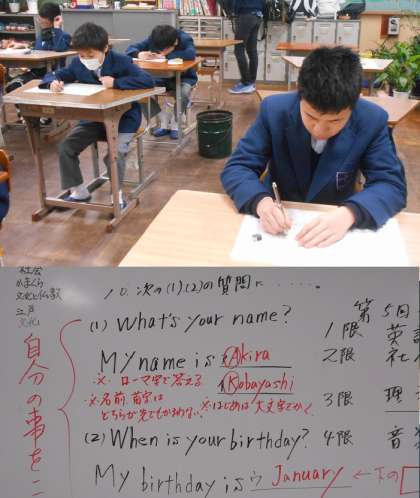 社会
かまくら
文化と仏教
江戸
文化
10. 次の(1)(2)の質問に……
(1) What's your name?
My name is Akira
Kobayashi
※・ローマ字で答える
※・名前、苗字は
どちらが先でもかまわない
※・はじめは大文字でかく
(2) When is your birthday?
My birthday is ウ January ←下の
自分の事を
第5回
1限 英
2限 社
3限 理
4限 音